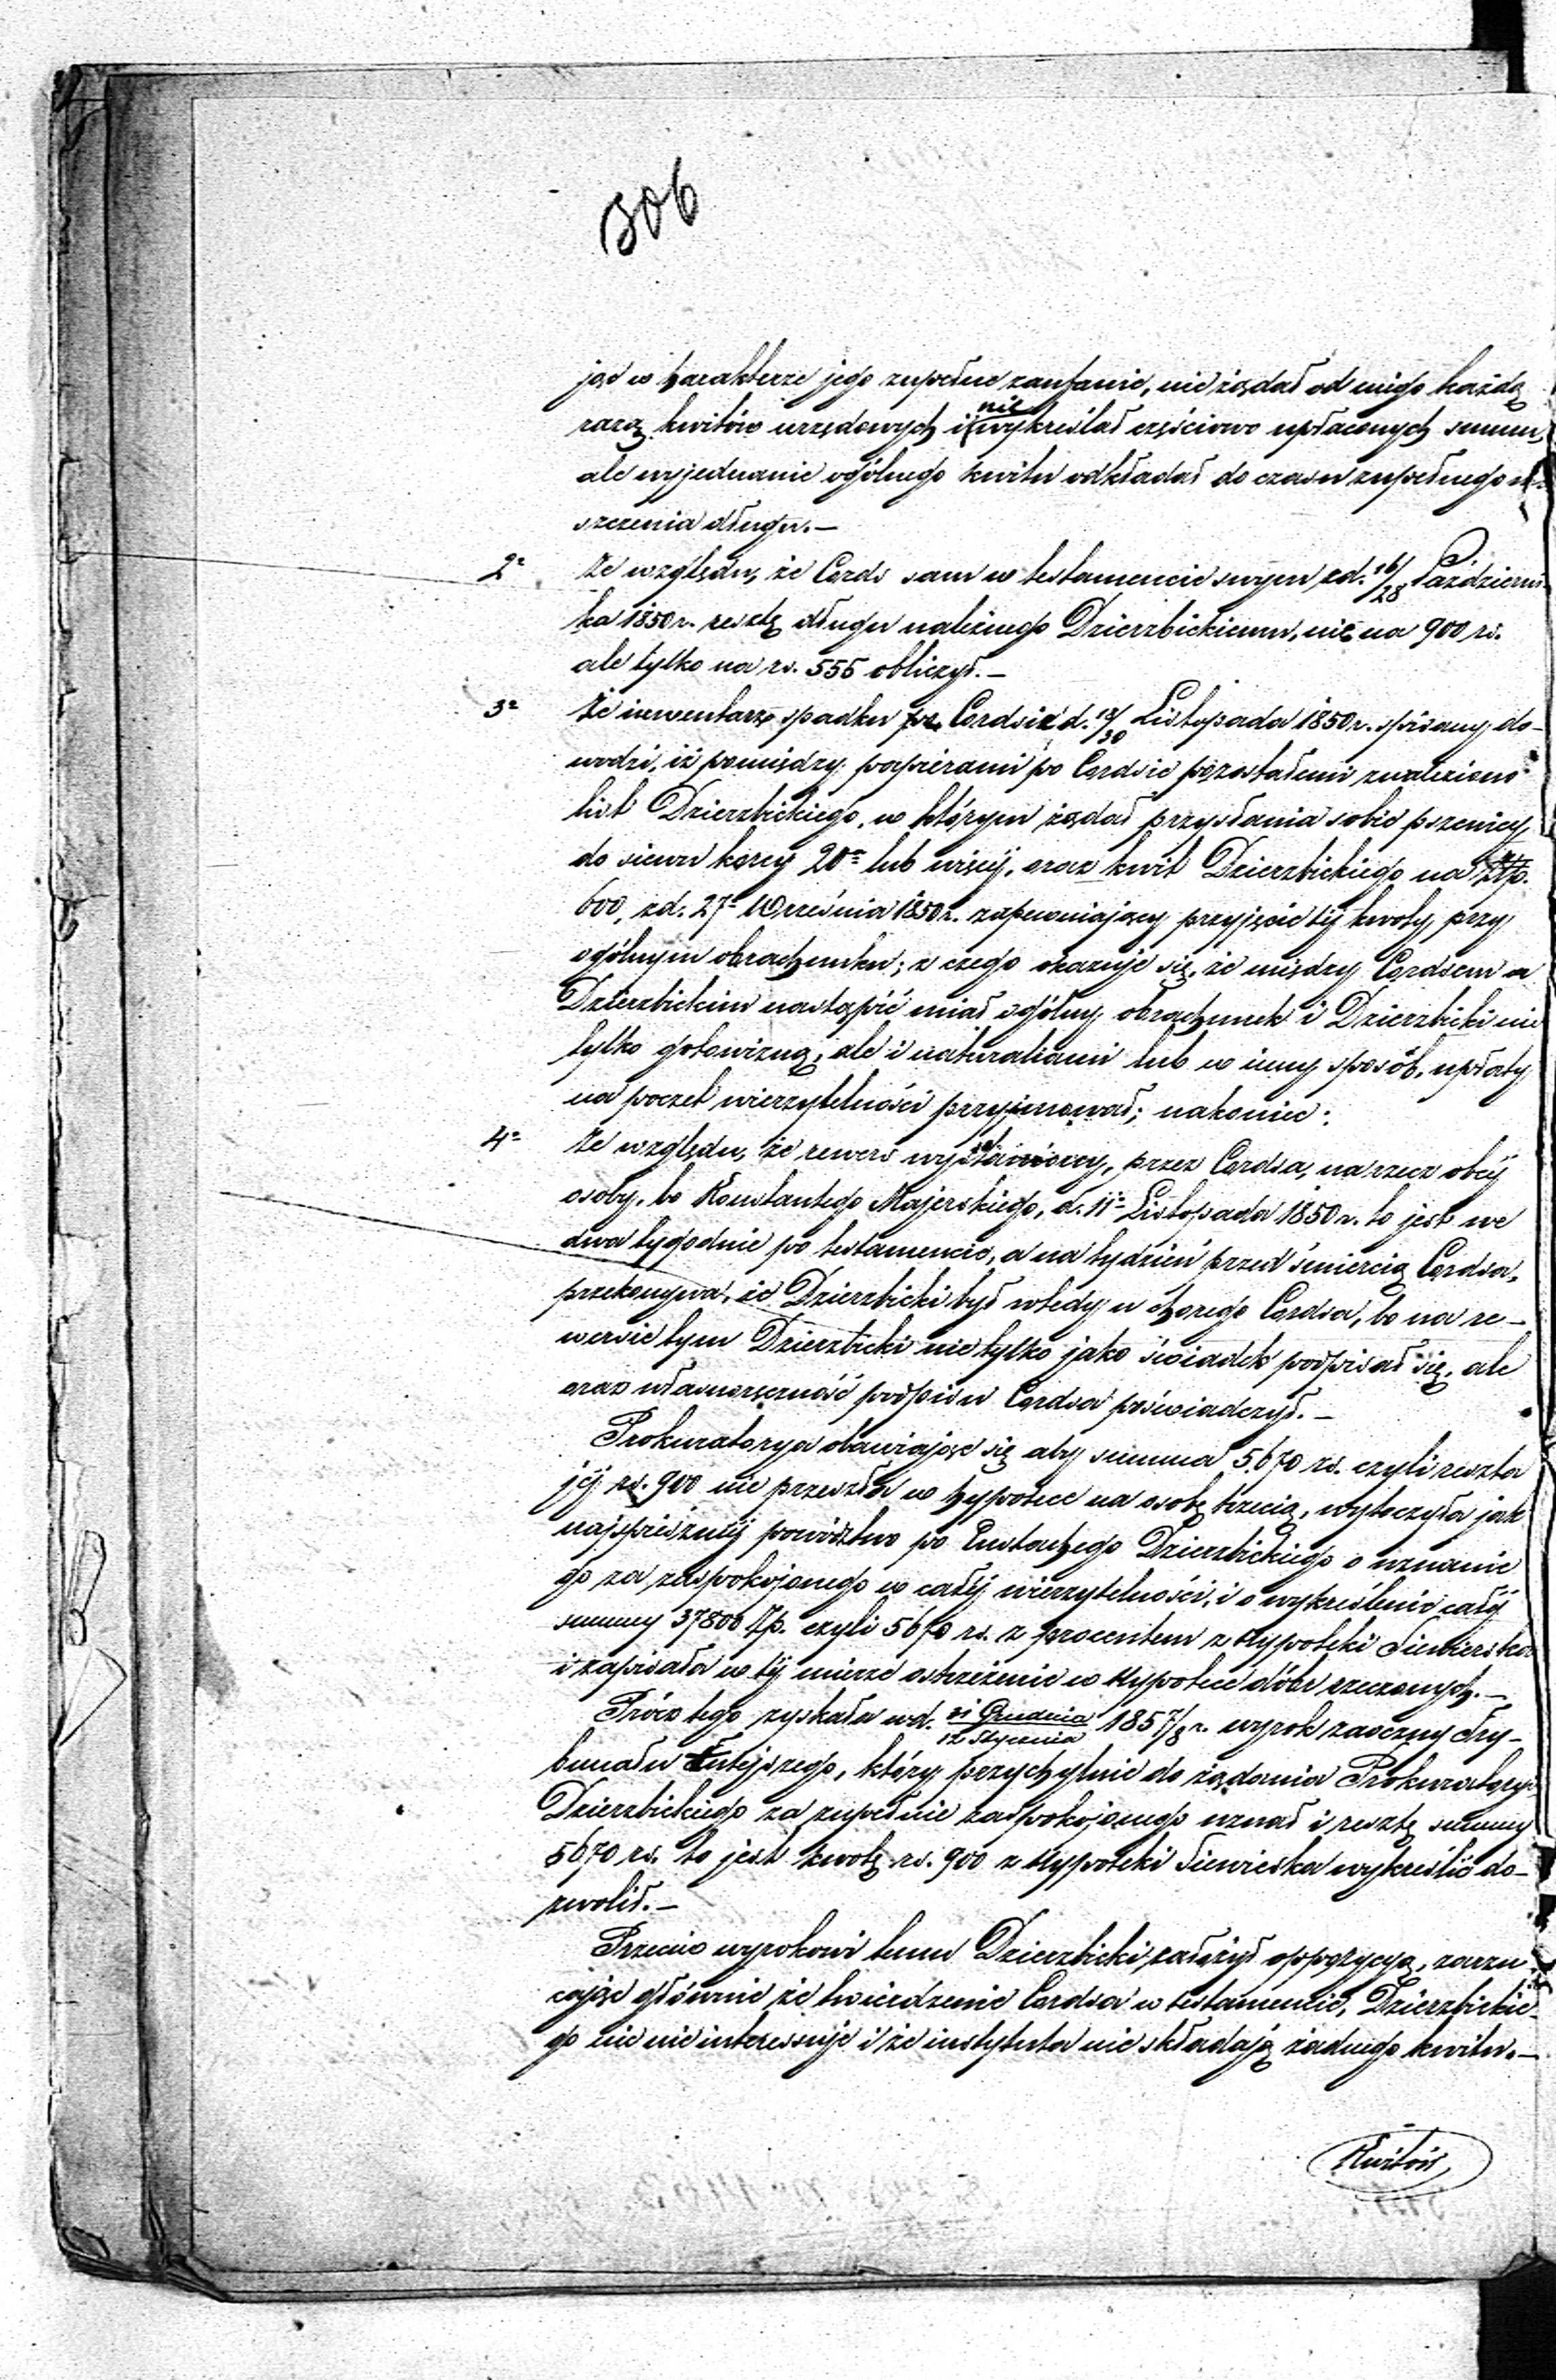 306
jąc w charakterze jego zupełne zaufanie, nie żądał od niego każdą
razą kwitów urzędowych i nie wykreślał częściowo upłaconych summ,
ale wyjednanie ogólnego kwitu odkładał do czasu zupełnego ui-
szczenia długu.—
2° Ze względu, że Cords sam w testamencie swym z d. 16/28 Październi-
ka 1850 r. resztę długu należnego Dzierzbickiemu, nie na 900 rs.
ale tylko na rs. 555 obliczył.—
3° Że inwentarz spadku po Cordsie d. 18/30 Listopada 1850 r. spisany do-
wodzi, iż pomiędzy papierami po Cordsie pozostałemi znaleziono
list Dzierzbickiego, w którym żądał przysłania sobie pszenicy
do siewu korcy 20° lub więcéj, oraz kwit Dzierzbickiego na Złp.
600, z d. 27° Września 1850 r. zapewniający przyjęcie téj kwoty przy
ogólnym obrachunku; z czego okazuje się, że między Cordsem a
Dzierzbickim nastąpić miał ogólny obrachunek i Dzierzbicki nie
tylko gotowizną, ale i naturaliami lub w inny sposób, upłaty
na poczet wierzytelności przyjmował; nakoniec:
4° Ze względu, że rewers wystawiony, przez Cordsa, na rzecz obcéj
osoby, bo Konstantego Majerskiego, d. 11° Listopada 1850 r. to jest we
dwa tygodnie po testamencie, a na tydzień przed śmiercią Cordsa,
przekonywa, że Dzierzbicki był wtedy u chorego Cordsa, bo na re-
wersie tym Dzierzbicki nie tylko jako świadek podpisał się, ale
oraz własnoręczność podpisu Cordsa poświadczył.—
Prokuratorya obawiając się aby summa 5670 rs. czyli reszta
jéj rs. 900 nie przeszła w hypotece na osobę trzecią, wytoczyła jak
najspieszniéj powództwo po Eustachego Dzierzbickiego o uznanie
go za zaspokojonego w całéj wierzytelności, i o wykreślenie całéj
summy 37800 Złp. czyli 5670 rs. z procentem z hypoteki Siewierska
i zapisała w téj mierze ostrzeżenie w hypotece dóbr rzeczonych.—
Prócz tego zyskała w d. 31 Grudnia / 12 Stycznia 1857/8 r. wyrok zaoczny Try-
bunału tutejszego, który przychylnie do żądania Prokuratoryi
Dzierzbickiego za zupełnie zaspokojonego uznał i resztę summy
5670 rs. to jest kwotę rs. 900 z hypoteki Siewierska wykreślić do-
zwolił.—
Przeciw wyrokowi temu Dzierzbicki założył oppozycyą, zarzu-
cając głównie że twierdzenie Cordsa w testamencie, Dzierzbickie-
go nic nie interessuje i że instytuta nie składają żadnego kwitu.—
Kwitów